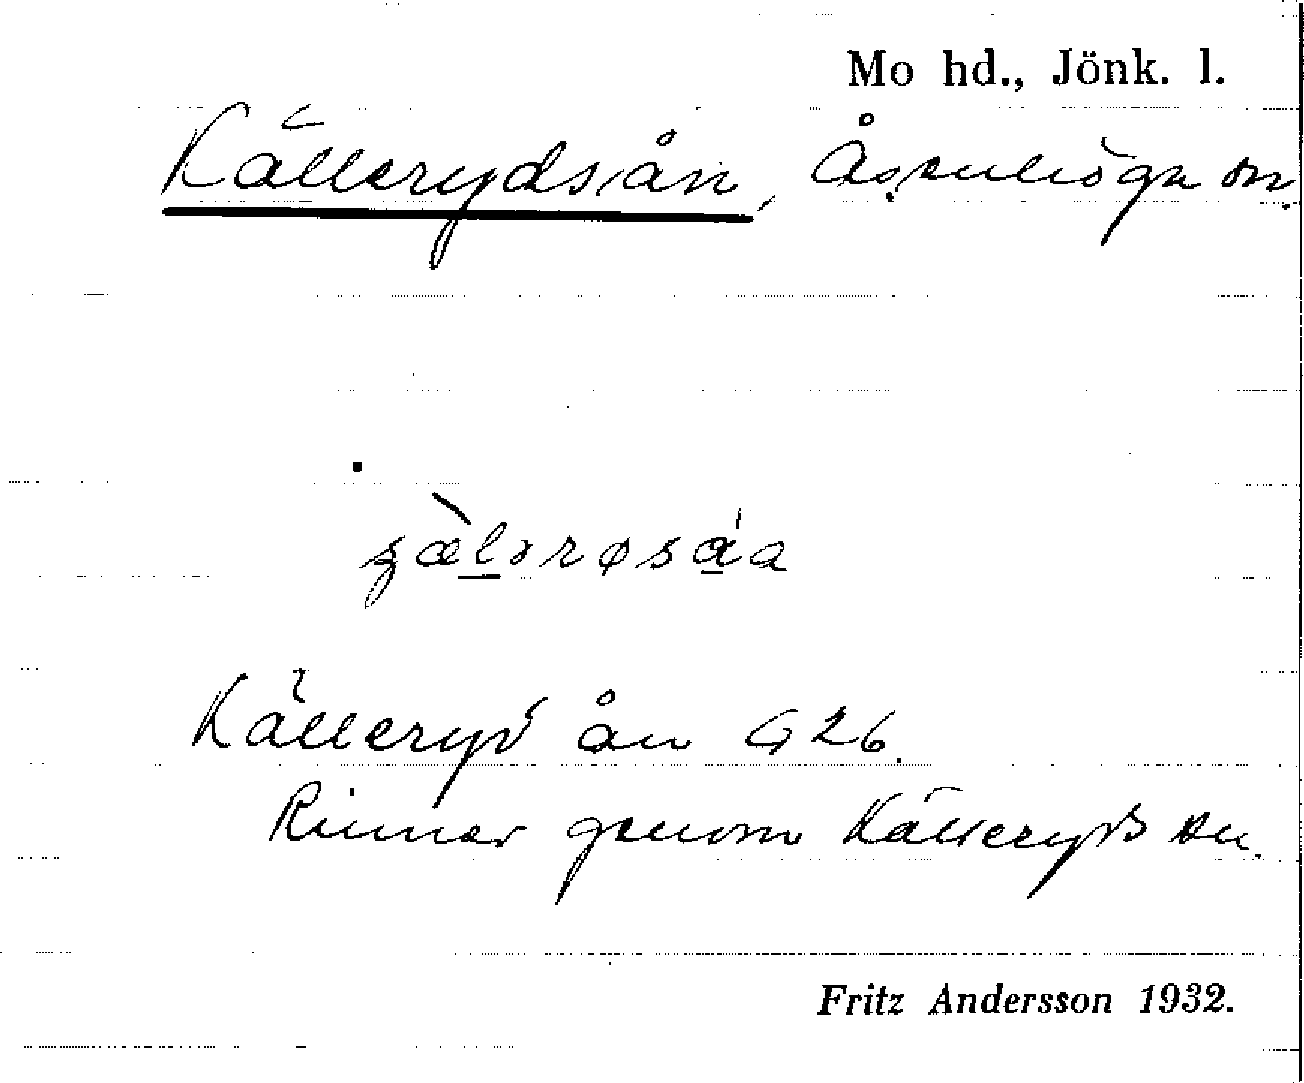 Mo hd., Jönk. l.
Källerydsån, Åsenhöga sn.
Källeryds ån G 26.
Rinner genom Källeryds sn.
Fritz Andersson 1932.